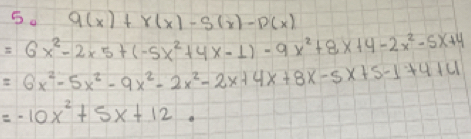 5. q(x) + r(x) - s(x) - p(x)
= 6x² - 2x5 + (-5x² + 4x - 1) - 9x² + 8x + 4 - 2x² - 5x + 4
= 6x² - 5x² - 9x² - 2x² - 2x + 4x + 8x - 5x + 5 - 1 + 4 + 4
= -10x² + 5x + 12.